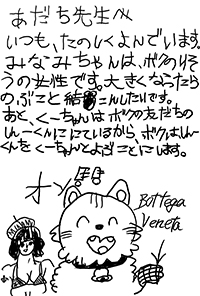 あだち先生へ
いつも、たのしくよんでいます。
みなこみちゃんは、ボクのりそ
うの女性です。大きくなったら
のぶこと結こんしたいです。
あと、くーちゃんはボクの友だちの
しんーくんににているから、ボクはしん
くんをくーちゃんとよぶことにします。
オッ!!
Bottega
Veneta